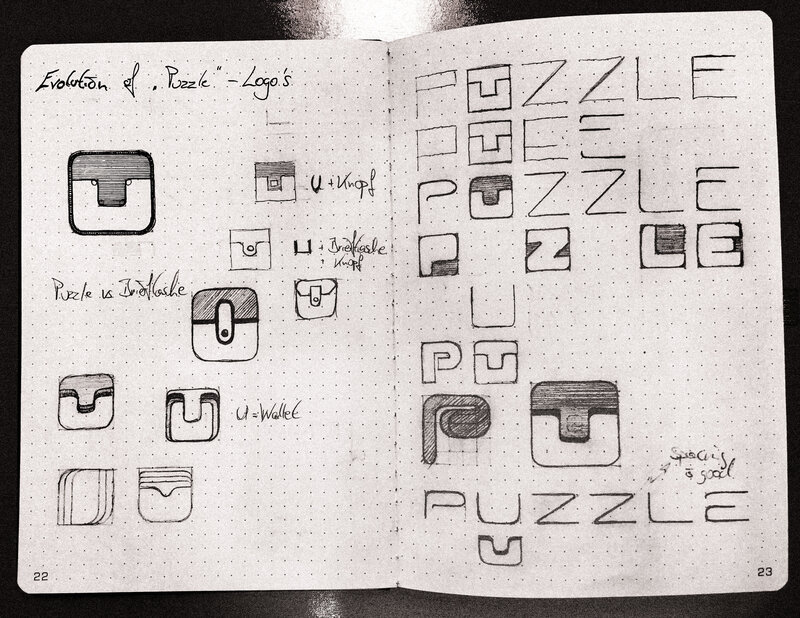 Evolution of „Puzzle" - Logo's
U + Knopf
U + Brieftasche
+ Knopf
Puzzle vs Brieftasche
U = Wallet
22
PUZZLE
PUZZLE
P Z LE
U
P
P
spacing
is good
PUZZLE
23